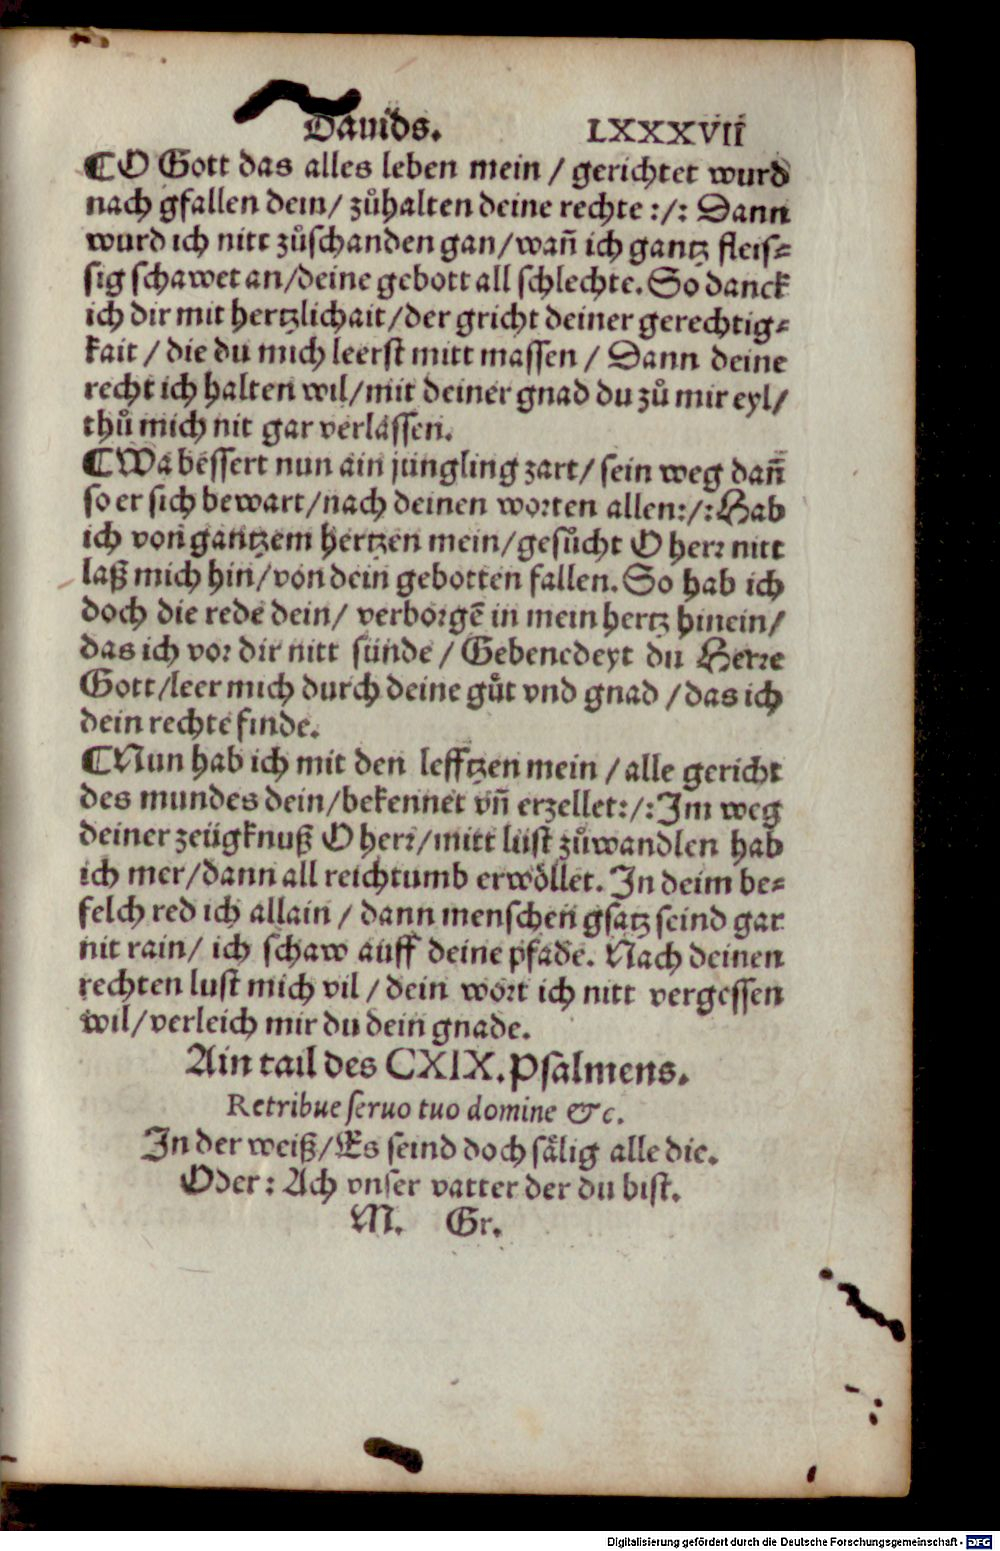 Dauids. LXXXVII
¶O Gott das alles leben mein / gerichtet wurd
nach gfallen dein/ zů halten deine rechte :/: Dann
wurd ich nitt zůschanden gan/wañ ich gantz fleis⸗
sig schawet an/deine gebott all schlechte. So danck
ich dir mit hertzlichait/der gricht deiner gerechtig⸗
kait / die du mich leerst mitt massen / Dann deine
recht ich halten wil/mit deiner gnad du zů mir eyl/
thů mich nit gar verlassen.
¶Wa bessert nun ain jüngling zart/ sein weg dañ
so er sich bewart/nach deinen worten allen:/:Hab
ich von gantzem hertzen mein/gesůcht O herr nitt
laß mich hin/von dein gebotten fallen. So hab ich
doch die rede dein/ verborgẽ in mein hertz hinein/
das ich vor dir nitt sünde / Gebenedeyt du Herre
Gott/leer mich durch deine gůt vnd gnad /das ich
dein rechte finde.
¶Nun hab ich mit den lefftzen mein / alle gericht
des mundes dein/bekennet vñ erzellet:/:Im weg
deiner zeügknuß O herr/mitt lüst zůwandlen hab
ich mer/dann all reichtumb erwöllet. In deim be⸗
felch red ich allain / dann menschen gsatz seind gar
nit rain/ ich schaw auff deine pfade. Nach deinen
rechten lust mich vil / dein wort ich nitt vergessen
wil/verleich mir du dein gnade.
Ain tail des CXIX. Psalmens.
Retribue seruo tuo domine &c.
In der weiß/Es seind doch sålig alle die.
Oder: Ach vnser vatter der du bist.
M. Gr.
Digitalisierung gefördert durch die Deutsche Forschungsgemeinschaft - DFG